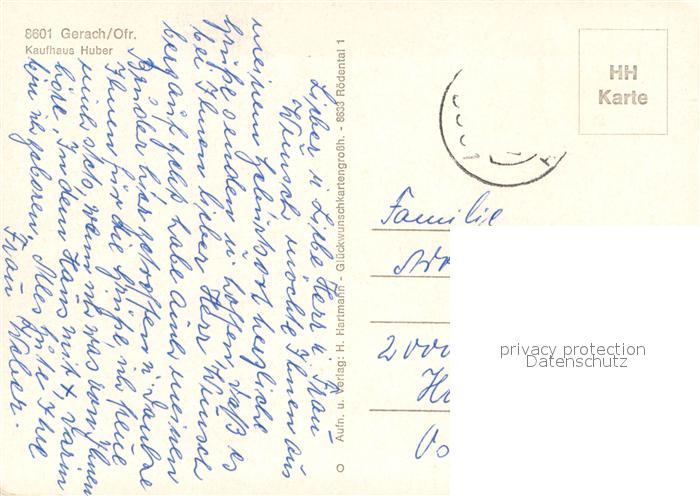 8601 Gerach/Ofr.
Kaufhaus Huber
Lieber u. Liebe Herr u. Frau
Wunsch möchte Ihnen aus
meinem Geburtsort herzliche
Grüße senden u. hoffen, daß es
bei Ihnen lieber Herr Wunsch
bergauf geht habe auch meinen
Bruder hier getroffen u. danke
Ihnen für die Grüße ich freue
mich stets, wenn ich was von Ihnen
höre. In dem Haus mit x darin
bin ich geboren. Alles Gute Ihre
Frau Walter.
Aufn. u. Verlag: H. Hartmann - Glückwunschkartengroßh. - 8633 Rödental 1
HH
Karte
Familie
2000
privacy protection
Datenschutz